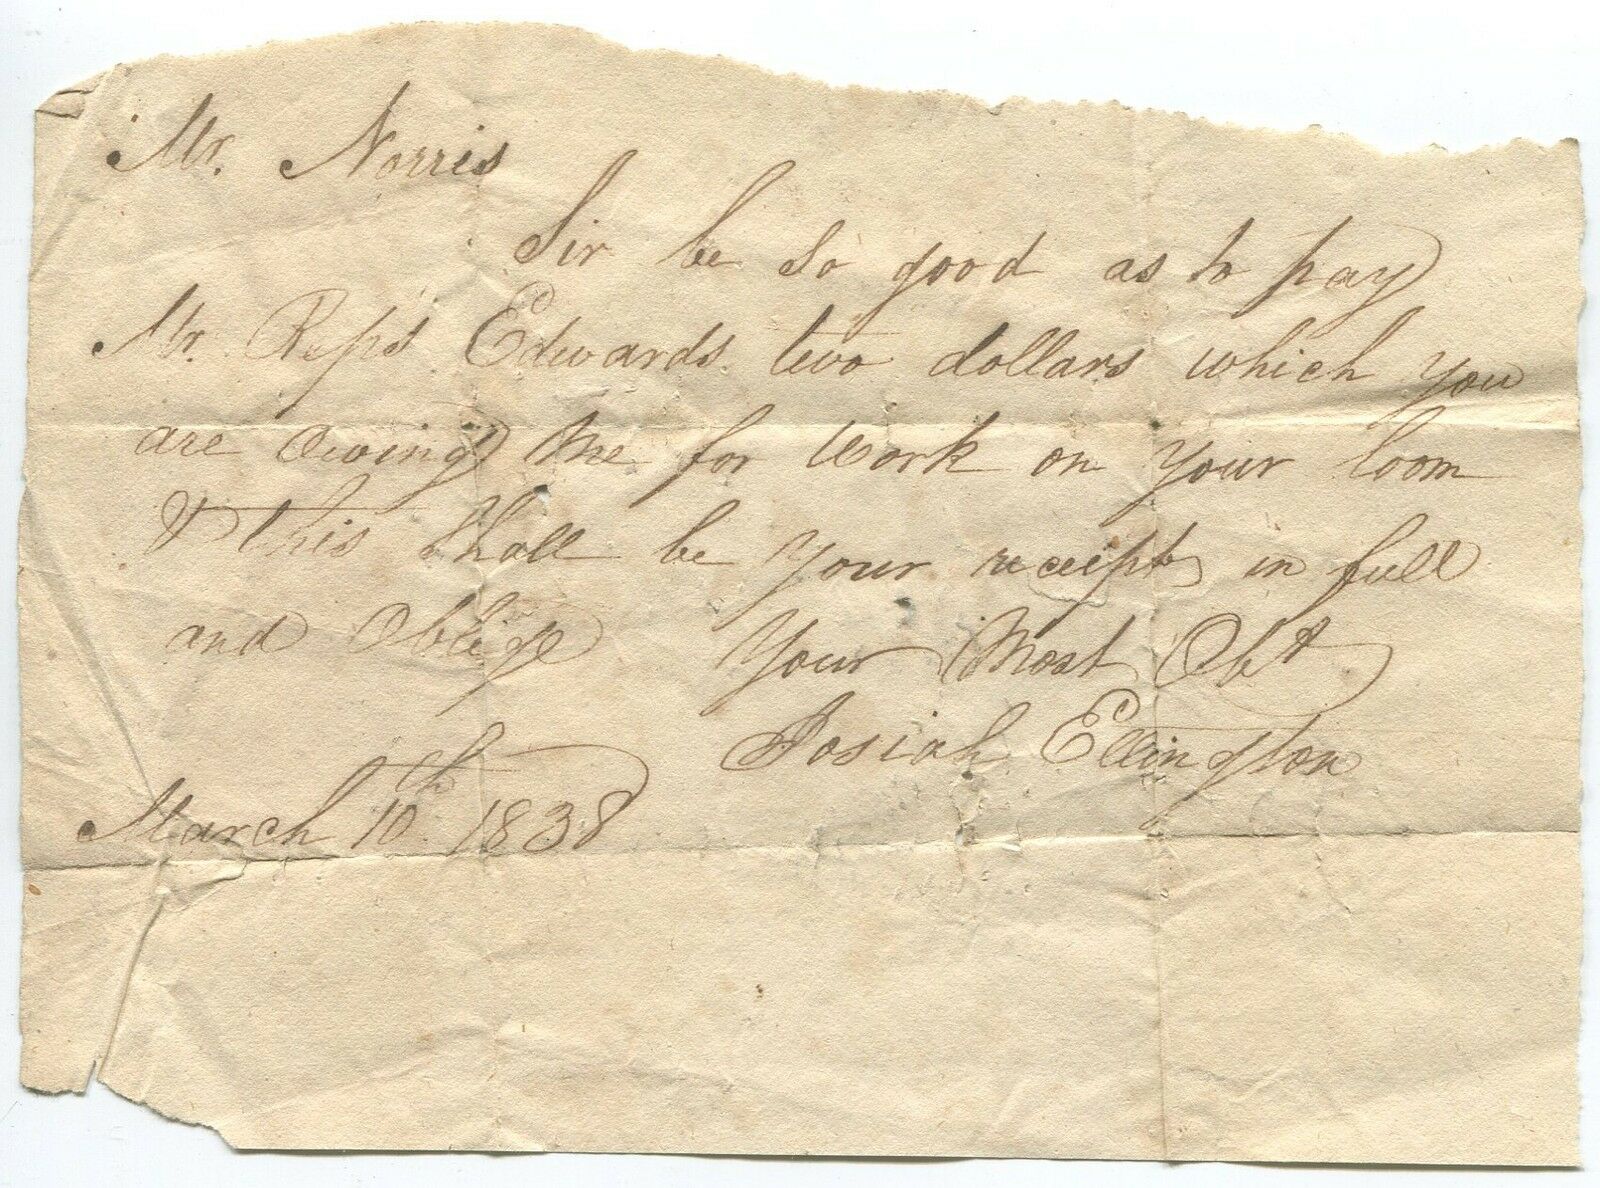 Mr. Norris
Sir be so good as to pay
Mr. Reps Edwards two dollars which you
are owing me for work on your loom
& this shall be your receipt in full
and Oblige Your Most Obt
Josiah Ellington
March 10th 1838